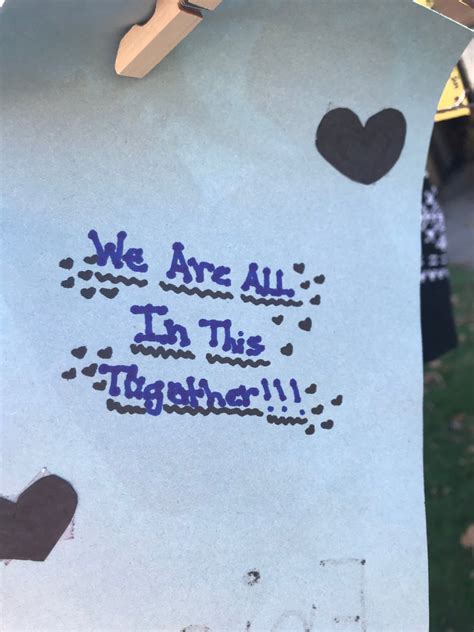 We Are All
In This
Tigether!!!